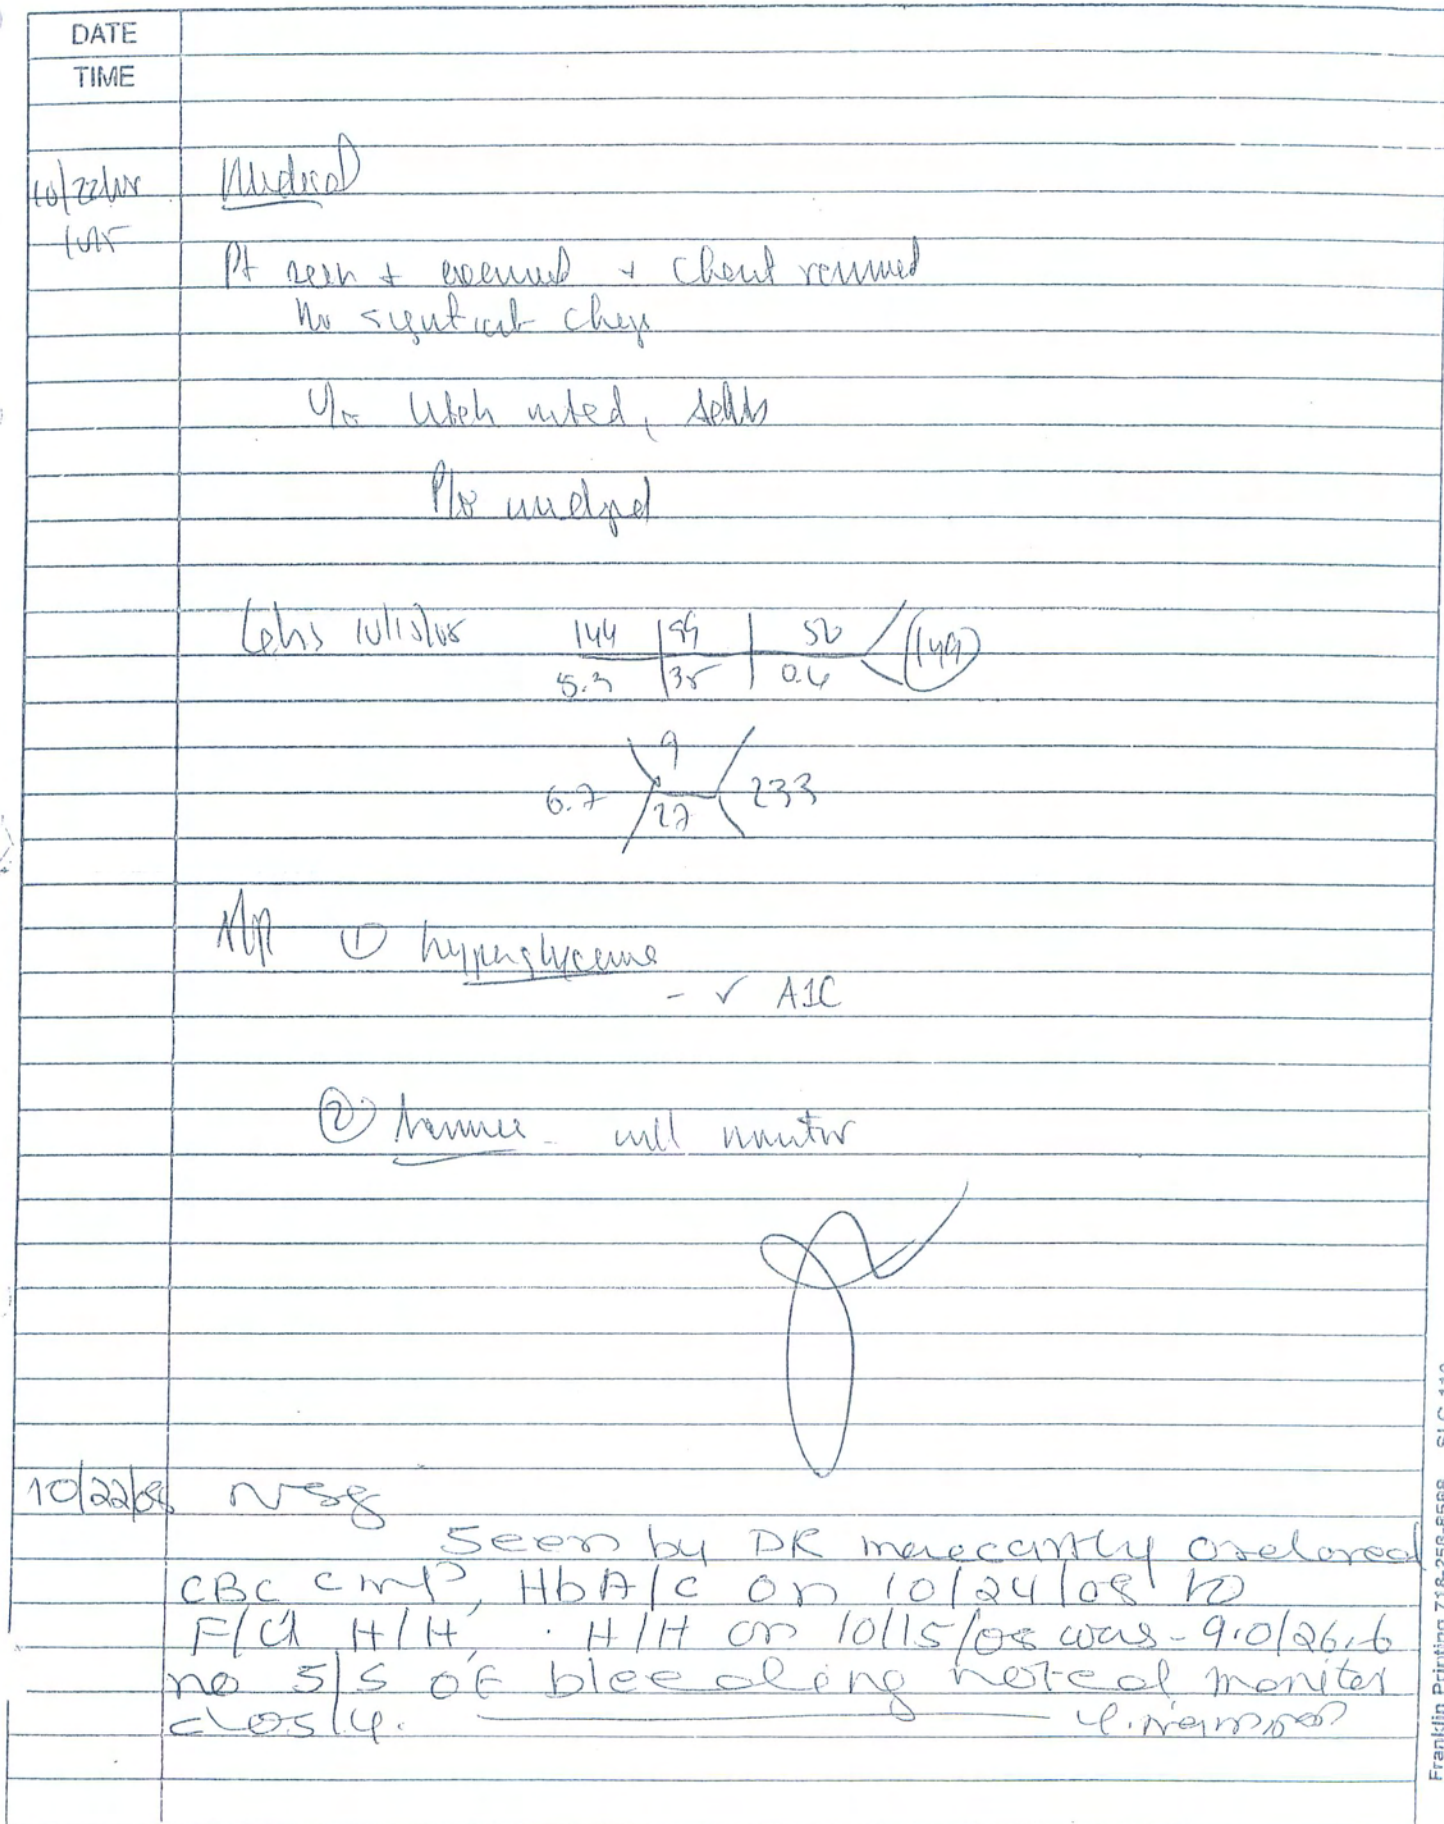 DATE
TIME
10/22/08 Medical
Pt seen + examined + chart reviewed
No significant chngs
noted,
P/E unchgd
Labs 10/15/08 144 99 50 149
5.3 35 0.6
9
6.7 27 233
A/P ① hyperglycemia
- ✓ A1C
② Anemia - will monitor
10/22/08 NSG
Seen by DR ordered
CBC CMP, HbA1C on 10/24/08 to
F/U H/H, H/H on 10/15/08 was - 9.0/26.6
no S/S of bleeding noted monitor
closly.
Franklin Printing 718-258-8588 SLC-112